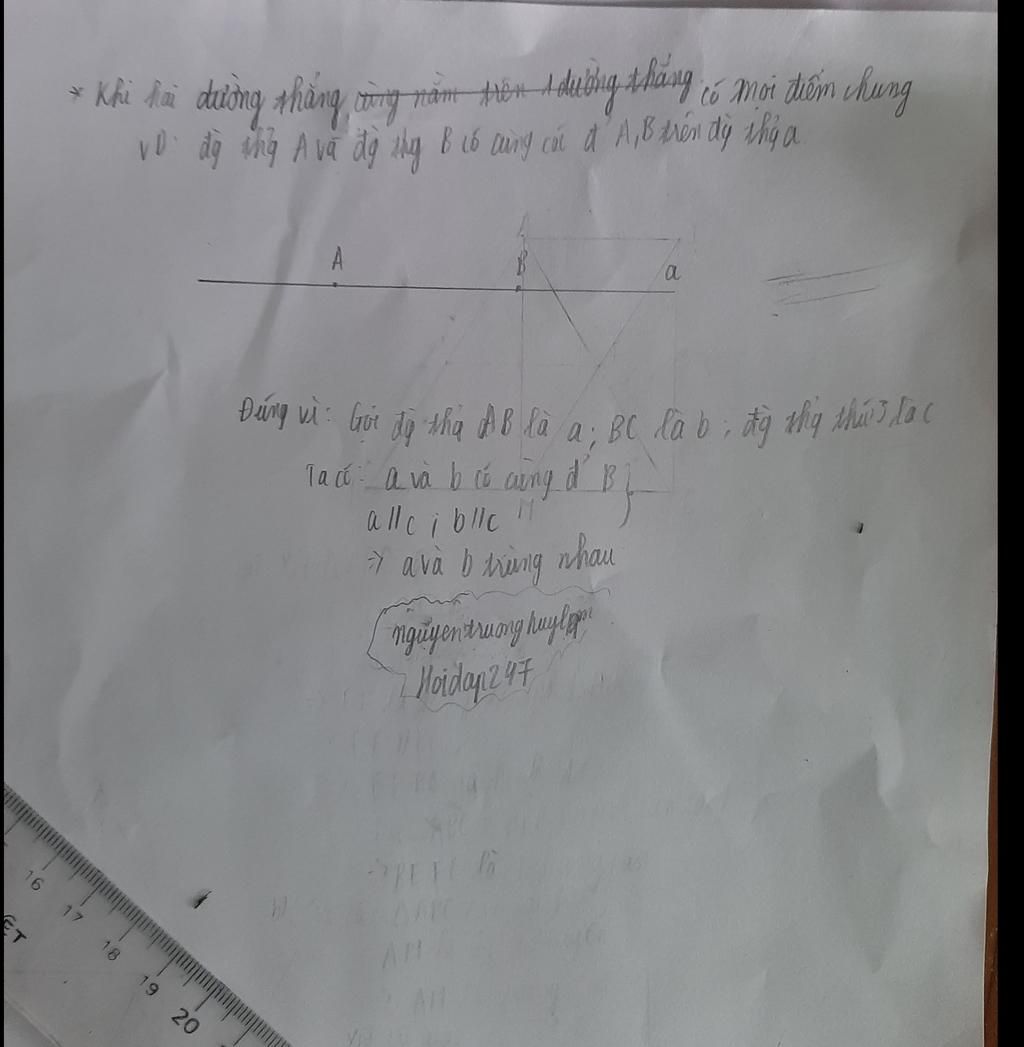 * Khi hai đường thẳng cùng nằm trên 1 đường thẳng, có mọi điểm chung
VD: đg thg A và đg thg B có cùng các đ' A, B trên đg thg a
A
B
a
Đúng vì: Gọi đg thg AB là a; BC là b; đg thg thứ 3 là c
Ta có: a và b có cùng đ' B
a // c ; b // c
=> a và b trùng nhau
nguyentruonghuy
Hoidap247
16
17
18
19
20
ẾT